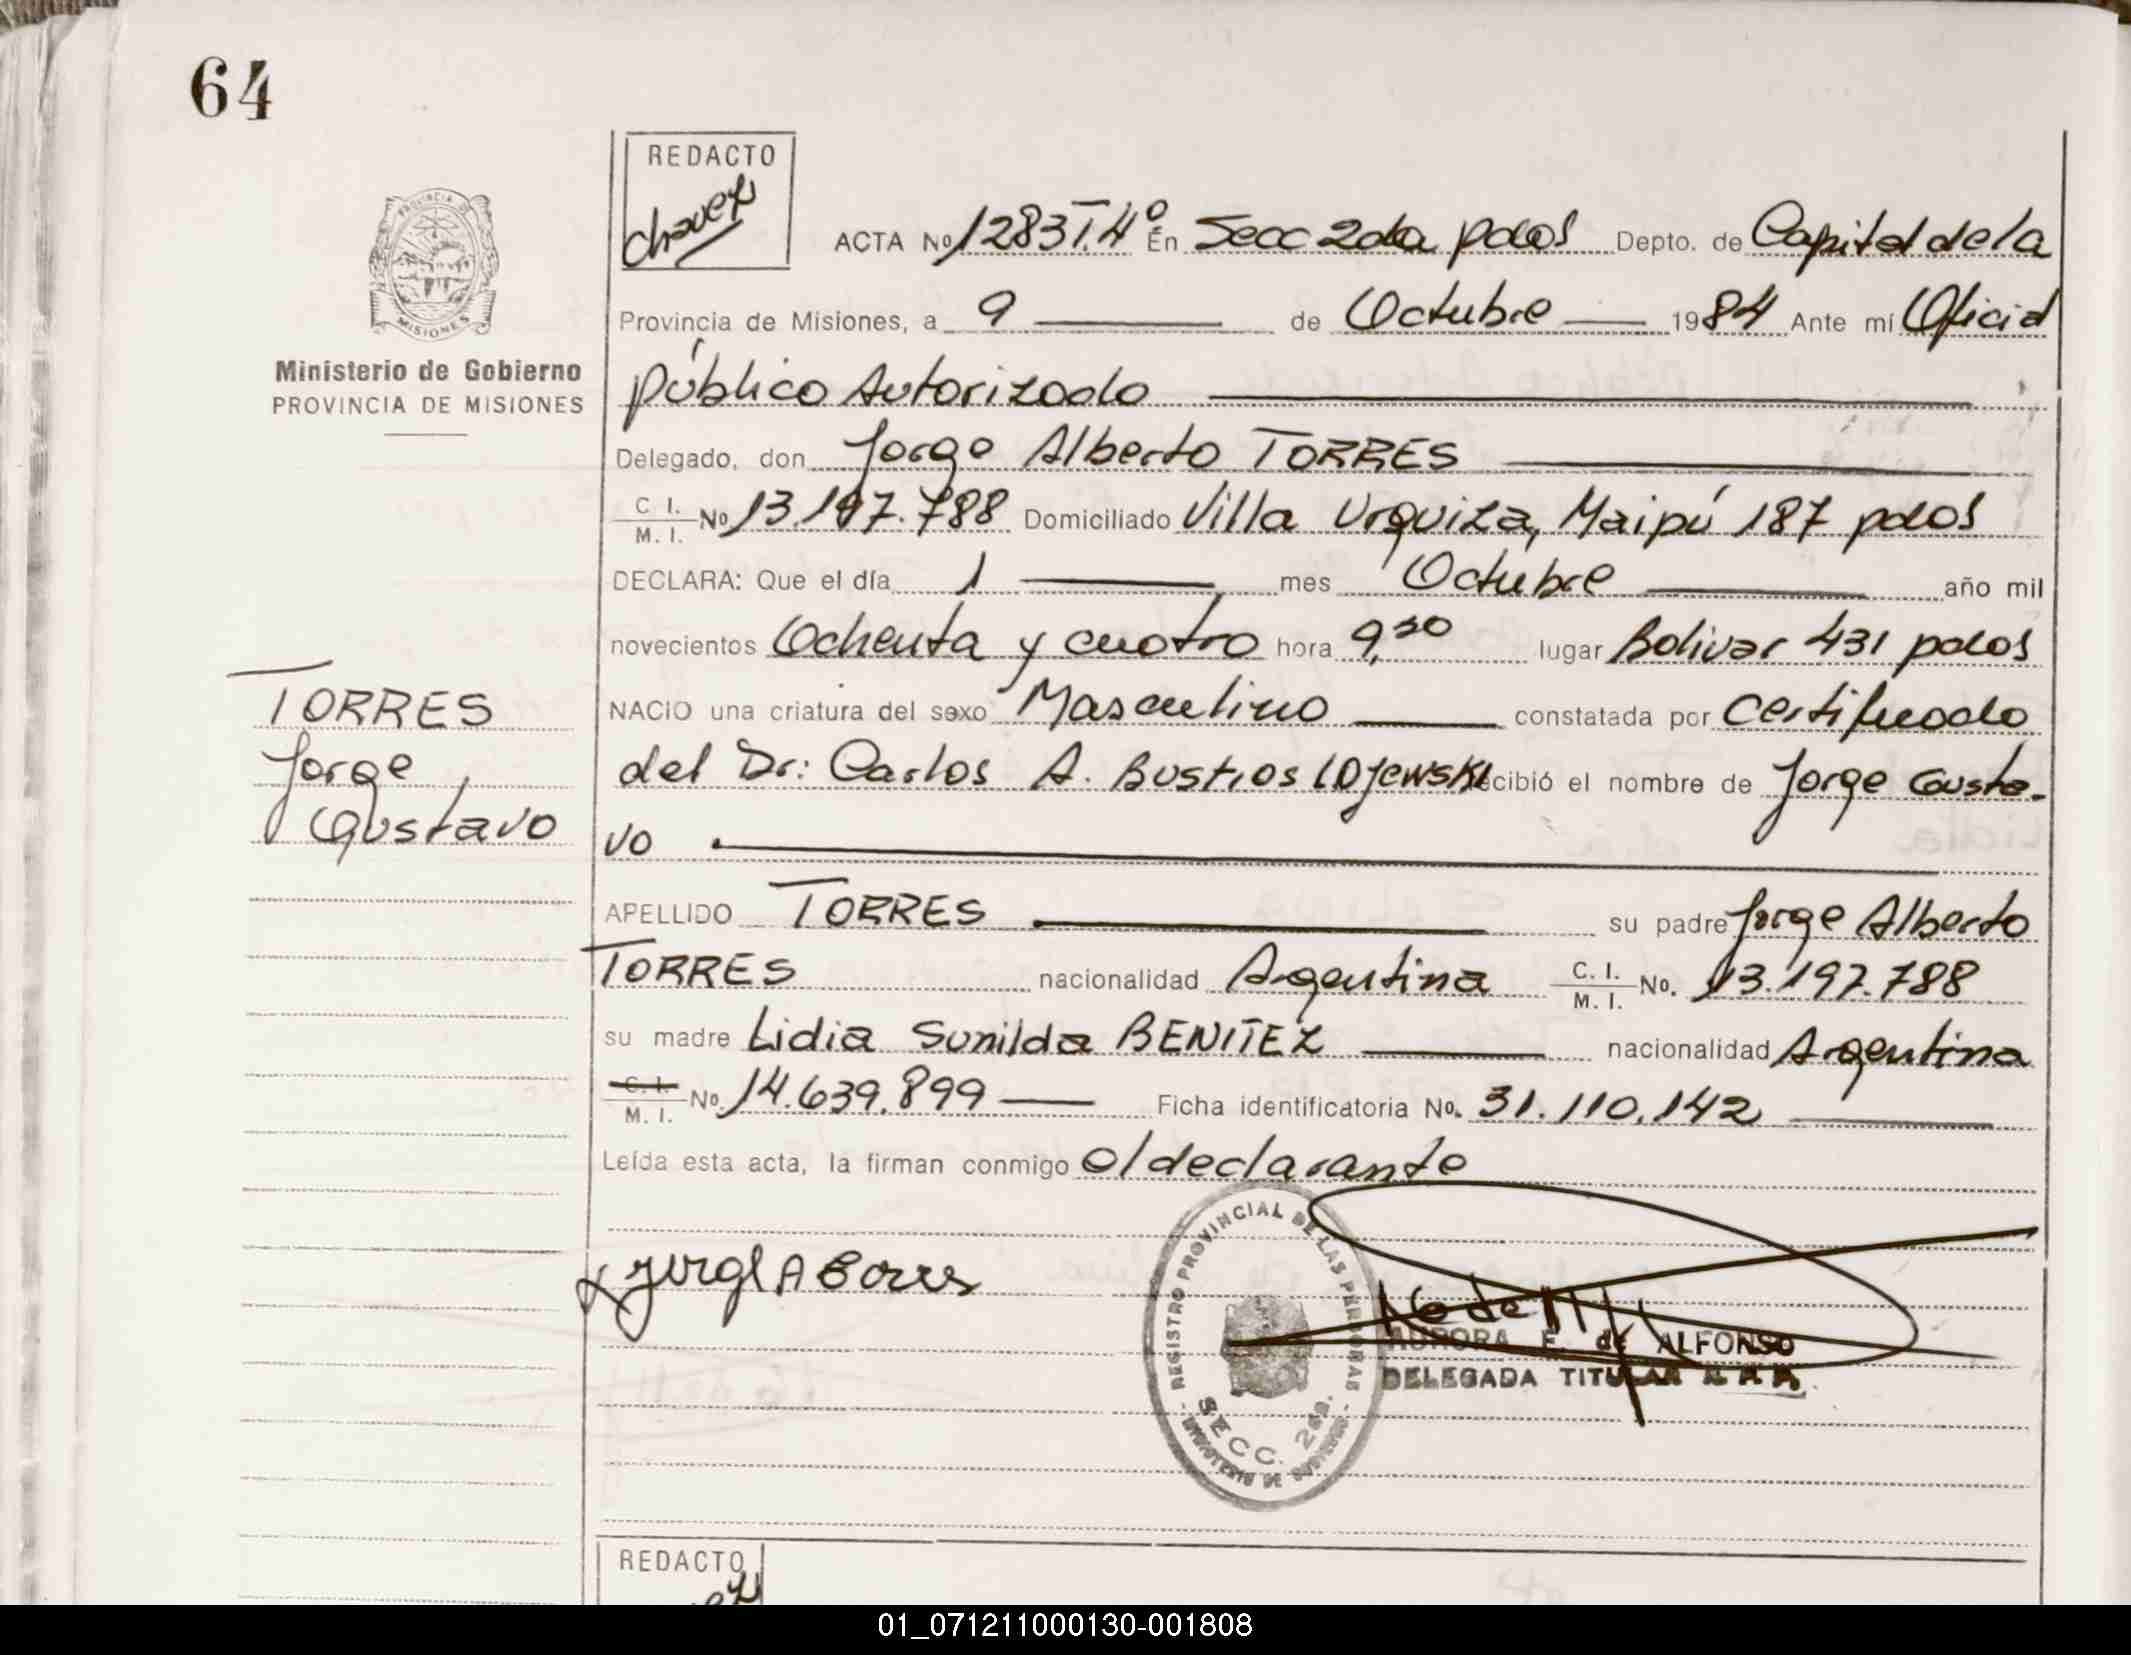 64
REDACTO
Chavez
ACTA No 1283T.4º En Secc 2da pdas Depto. de Capital de la
PROVINCIA DE
MISIONES
Ministerio de Gobierno
PROVINCIA DE MISIONES
Provincia de Misiones, a 9 de Octubre 1984 Ante mí Oficial
público Autorizado
Delegado, don Jorge Alberto TORRES
C. I. M. I. No 13.197.788 Domiciliado Villa Urquiza, Maipú 187 pdas
DECLARA: Que el día 1 mes Octubre año mil
novecientos Ochenta y cuatro hora 9,30 lugar Bolivar 431 pdas
TORRES
Jorge
Gustavo
NACIO una criatura del sexo Masculino constatada por Certificado
del Dr: Carlos A. Bustios LOJEWSKI ecibió el nombre de Jorge Gusta-
vo
APELLIDO TORRES su padre Jorge Alberto
TORRES nacionalidad Argentina C. I. M. I. No. 13.197.788
su madre Lidia Sunilda BENITEZ nacionalidad Argentina
C. I. M. I. No. 14.639.899 Ficha identificatoria No. 31.110.142
Leída esta acta, la firman conmigo el declarante
REGISTRO PROVINCIAL DE LAS PERSONAS
SECC. 2da.
MINISTERIO DE GOBIERNO
AURORA E. de ALFONSO
DELEGADA TITULAR
REDACTO
01_071211000130-001808